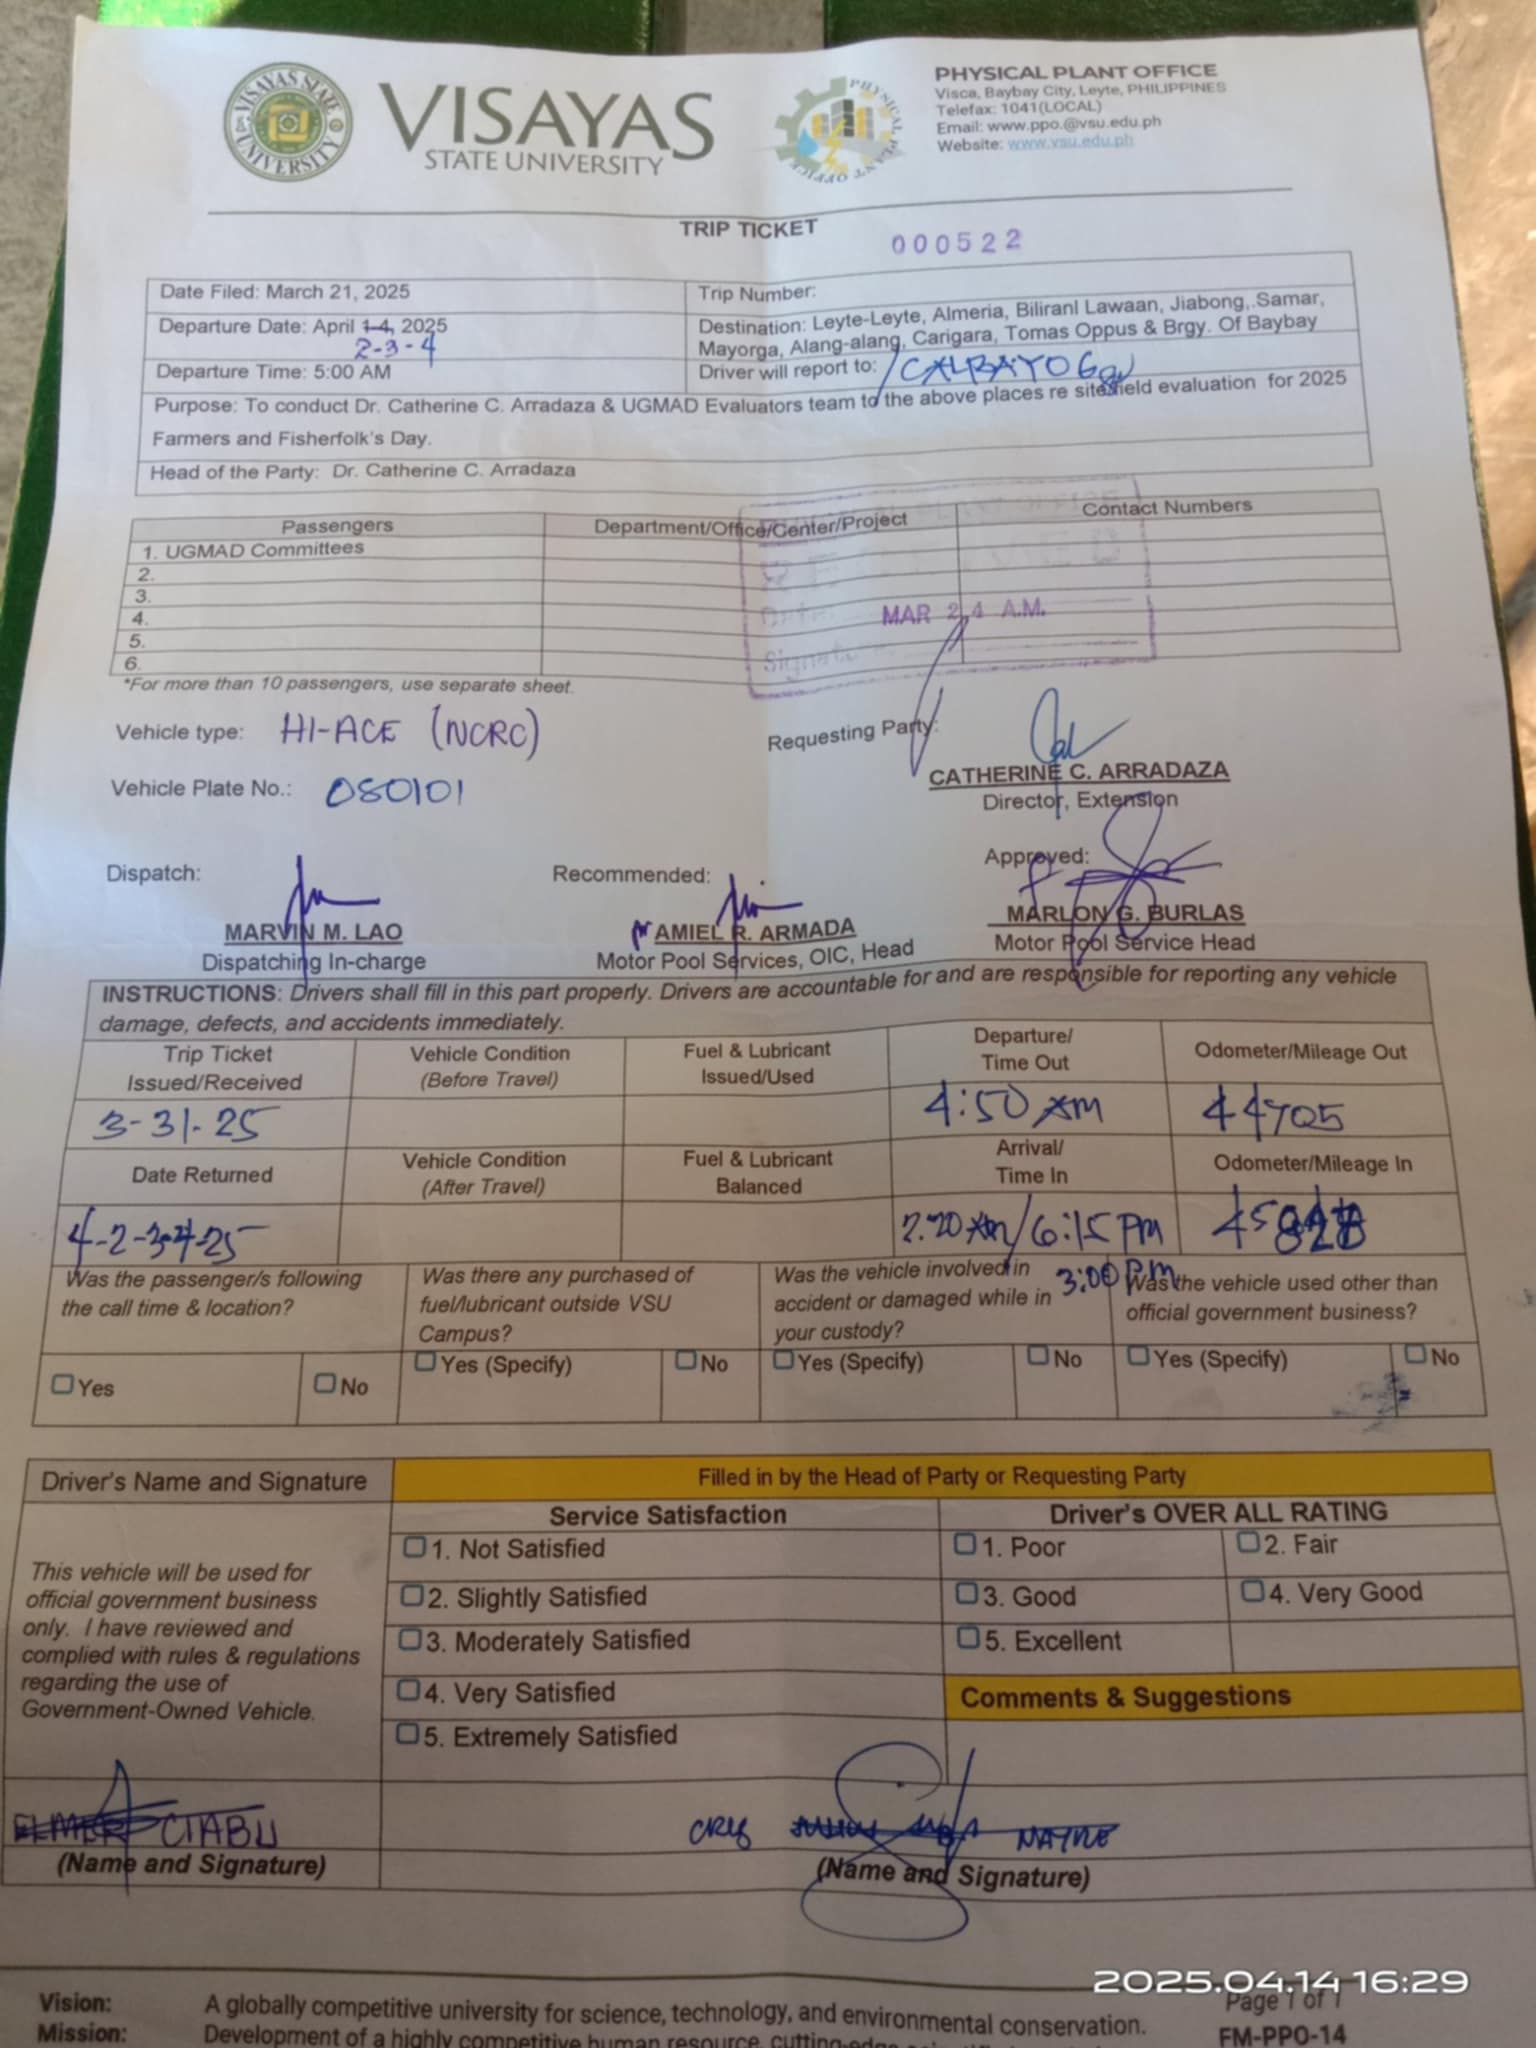 VISAYAS STATE UNIVERSITY
VISAYAS
STATE UNIVERSITY
PHYSICAL PLANT OFFICE
PHYSICAL PLANT OFFICE
Visca, Baybay City, Leyte, PHILIPPINES
Telefax: 1041(LOCAL)
Email: www.ppo.@vsu.edu.ph
Website: www.vsu.edu.ph
TRIP TICKET
000522
Date Filed: March 21, 2025
Trip Number:
Departure Date: April 1-4, 2025
2-3-4
Destination: Leyte-Leyte, Almeria, Biliranl Lawaan, Jiabong, Samar,
Mayorga, Alang-alang, Carigara, Tomas Oppus & Brgy. Of Baybay
Departure Time: 5:00 AM
Driver will report to: / CALBAYOG
Purpose: To conduct Dr. Catherine C. Arradaza & UGMAD Evaluators team to the above places re site/field evaluation for 2025
Farmers and Fisherfolk's Day.
Head of the Party: Dr. Catherine C. Arradaza
Passengers
Department/Office/Center/Project
Contact Numbers
1. UGMAD Committees
2.
3.
4.
5.
6.
MAR 24 A.M.
*For more than 10 passengers, use separate sheet.
Vehicle type: HI-ACE (NCRC)
Requesting Party:
CATHERINE C. ARRADAZA
Director, Extension
Vehicle Plate No.: 080101
Dispatch:
Recommended:
Approved:
MARVIN M. LAO
AMIEL R. ARMADA
MARLON G. BURLAS
Dispatching In-charge
Motor Pool Services, OIC, Head
Motor Pool Service Head
INSTRUCTIONS: Drivers shall fill in this part properly. Drivers are accountable for and are responsible for reporting any vehicle
damage, defects, and accidents immediately.
Trip Ticket
Issued/Received
Vehicle Condition
(Before Travel)
Fuel & Lubricant
Issued/Used
Departure/
Time Out
Odometer/Mileage Out
3-31-25
4:50 AM
Date Returned
Vehicle Condition
(After Travel)
Fuel & Lubricant
Balanced
Arrival/
Time In
Odometer/Mileage In
4-2-3-4-25
/6:15 PM
3:00 PM
Was the passenger/s following
the call time & location?
Was there any purchased of
fuel/lubricant outside VSU
Campus?
Was the vehicle involved in
accident or damaged while in
your custody?
Was the vehicle used other than
official government business?
Yes
No
Yes (Specify)
No
Yes (Specify)
No
Yes (Specify)
No
Driver's Name and Signature
Filled in by the Head of Party or Requesting Party
Service Satisfaction
Driver's OVER ALL RATING
This vehicle will be used for
official government business
only. I have reviewed and
complied with rules & regulations
regarding the use of
Government-Owned Vehicle.
1. Not Satisfied
2. Slightly Satisfied
3. Moderately Satisfied
4. Very Satisfied
5. Extremely Satisfied
1. Poor
2. Fair
3. Good
4. Very Good
5. Excellent
Comments & Suggestions
(Name and Signature)
(Name and Signature)
2025.04.14 16:29
Vision: A globally competitive university for science, technology, and environmental conservation.
Page 1 of 1
Mission: Development of a highly competitive human resource, cutting-edge
FM-PPO-14